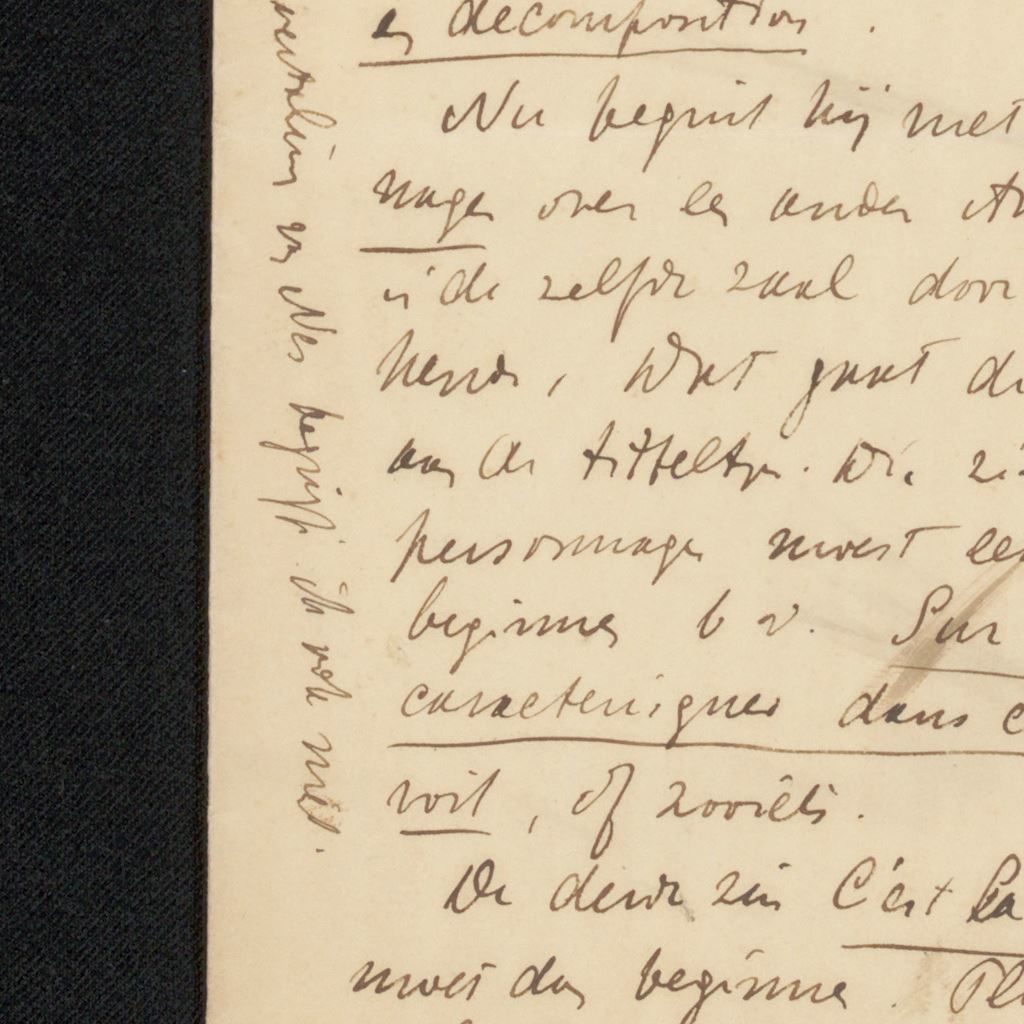 en decomposition.
Nu begint hij met
nages over een ander
in de zelfde zaal door
heende, Wat gaat
aan de titteltje. Die
personnages moest een
beginnen b v. Sur
caracterisques dans c
voit, of zooiets.
De derde zin C'est La
moest dan beginnen.
vertaling van Nes begrijp ik ook niet.